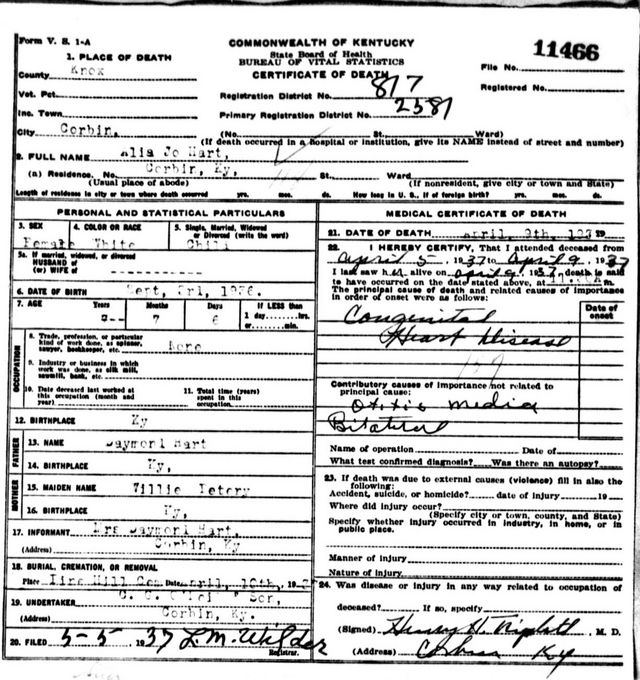 Form V. S. 1-A
COMMONWEALTH OF KENTUCKY
State Board of Health
BUREAU OF VITAL STATISTICS
CERTIFICATE OF DEATH
11466
File No.
Registered No.
1. PLACE OF DEATH
County Knox
Vot. Pct.
Inc. Town
City Corbin,
Registration District No. 817
Primary Registration District No. 2581
(No. St. Ward)
(If death occurred in a hospital or institution, give its NAME instead of street and number)
2. FULL NAME Jo Hart,
(a) Residence. No. Corbin, Ky, St. Ward
(Usual place of abode) (If nonresident, give city or town and State)
Length of residence in city or town where death occurred yrs. mos. ds. How long in U. S., if of foreign birth? yrs. mos. ds.
PERSONAL AND STATISTICAL PARTICULARS
3. SEX 4. COLOR OR RACE 5. Single, Married, Widowed or Divorced (write the word)
Female White Child
5a. If married, widowed, or divorced
HUSBAND of
(or) WIFE of
6. DATE OF BIRTH Sept,
7. AGE Years Months Days If LESS than
7 6 1 day, hrs.
or min.
OCCUPATION
8. Trade, profession, or particular
kind of work done, as spinner,
sawyer, bookkeeper, etc. None
9. Industry or business in which
work was done, as silk mill,
sawmill, bank, etc.
10. Date deceased last worked at
this occupation (month and
year)
11. Total time (years)
spent in this
occupation
12. BIRTHPLACE Ky
FATHER
13. NAME Hart
14. BIRTHPLACE Ky,
MOTHER
15. MAIDEN NAME Willie
16. BIRTHPLACE Ky,
17. INFORMANT Mrs Hart,
(Address) Corbin, Ky
18. BURIAL, CREMATION, OR REMOVAL
Place Hill Cem Date April, 10th, 19
19. UNDERTAKER
Corbin, Ky.
20. FILED 5-5 1937 L. M. Wilder
Registrar.
MEDICAL CERTIFICATE OF DEATH
21. DATE OF DEATH April, 9th, 19
22. I HEREBY CERTIFY, That I attended deceased from
April 5, 1937 to April 9, 1937
I last saw h alive on April 9, 1937, death is said
to have occurred on the date stated above, at m.
The principal cause of death and related causes of importance
in order of onset were as follows:
Date of onset
Congenital
Heart Disease
Contributory causes of importance not related to
principal cause:
Otitis media
Bilateral
Name of operation Date of
What test confirmed diagnosis? Was there an autopsy?
23. If death was due to external causes (violence) fill in also the
following:
Accident, suicide, or homicide? date of injury 19
Where did injury occur?
(Specify city or town, county, and State)
Specify whether injury occurred in industry, in home, or in
public place.
Manner of injury
Nature of injury
24. Was disease or injury in any way related to occupation of
deceased? If so, specify
(Signed) Henry H. M. D.
(Address) Corbin Ky